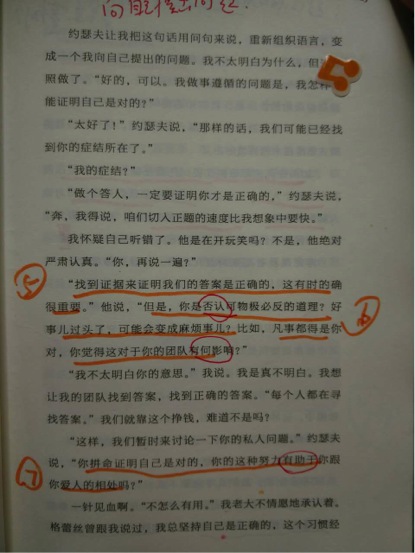 向自己提出问题.
约瑟夫让我把这句话用问句来说，重新组织语言，变
成一个我向自己提出的问题。我不太明白为什么，但
照做了。“好的，可以。我做事遵循的问题是，我怎样
能证明自己是对的？”
5
“太好了！”约瑟夫说，“那样的话，我们可能已经找
到你的症结所在了。”
“我的症结？”
“做个答人，一定要证明你才是正确的，”约瑟夫说，
“奔，我得说，咱们切入正题的速度比我想象中要快。”
我怀疑自己听错了。他是在开玩笑吗？不是，他绝对
严肃认真。“你，再说一遍？”
⑤
“找到证据来证明我们的答案是正确的，这有时的确
很重要。”他说，“但是，你是否认可物极必反的道理？好
事儿过头了，可能会变成麻烦事儿？比如，凡事都得是你
⑥
对，你觉得这对于你的团队有何影响？”
“我不太明白你的意思。”我说。我是真不明白。我想
让我的团队找到答案，找到正确的答案。“每个人都在寻
找答案。”我们就靠这个挣钱，难道不是吗？
“这样，我们暂时来讨论一下你的私人问题。”约瑟夫
说，“你拼命证明自己是对的，你的这种努力有助于你跟
⑦
你爱人的相处吗？”
一针见血啊。“不怎么有用。”我老大不情愿地承认着。
格蕾丝曾跟我说过，我总坚持自己是正确的，这个习惯经